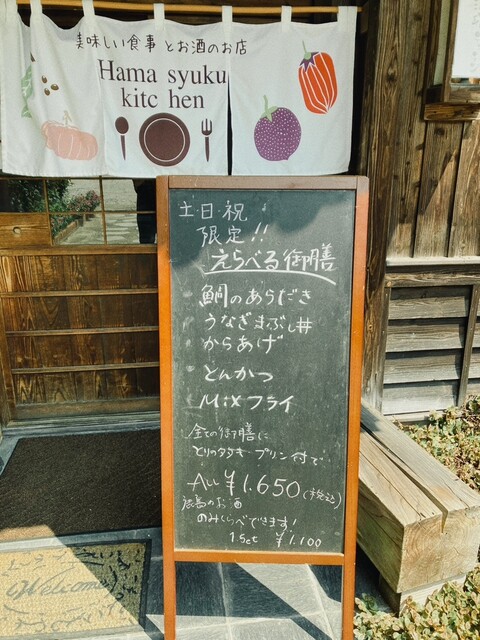 美味しい食事とお酒のお店
Hama syuku
kitc hen
土・日・祝
限定!!
えらべる御膳
鯛のあらだき
うなぎまぶし丼
からあげ
とんかつ
Mixフライ
全ての御膳に
とりのタタキ プリン付で
ALL ¥1.650 (税込)
鹿島のお酒
のみくらべできます!
1set ¥1.100
Welcome